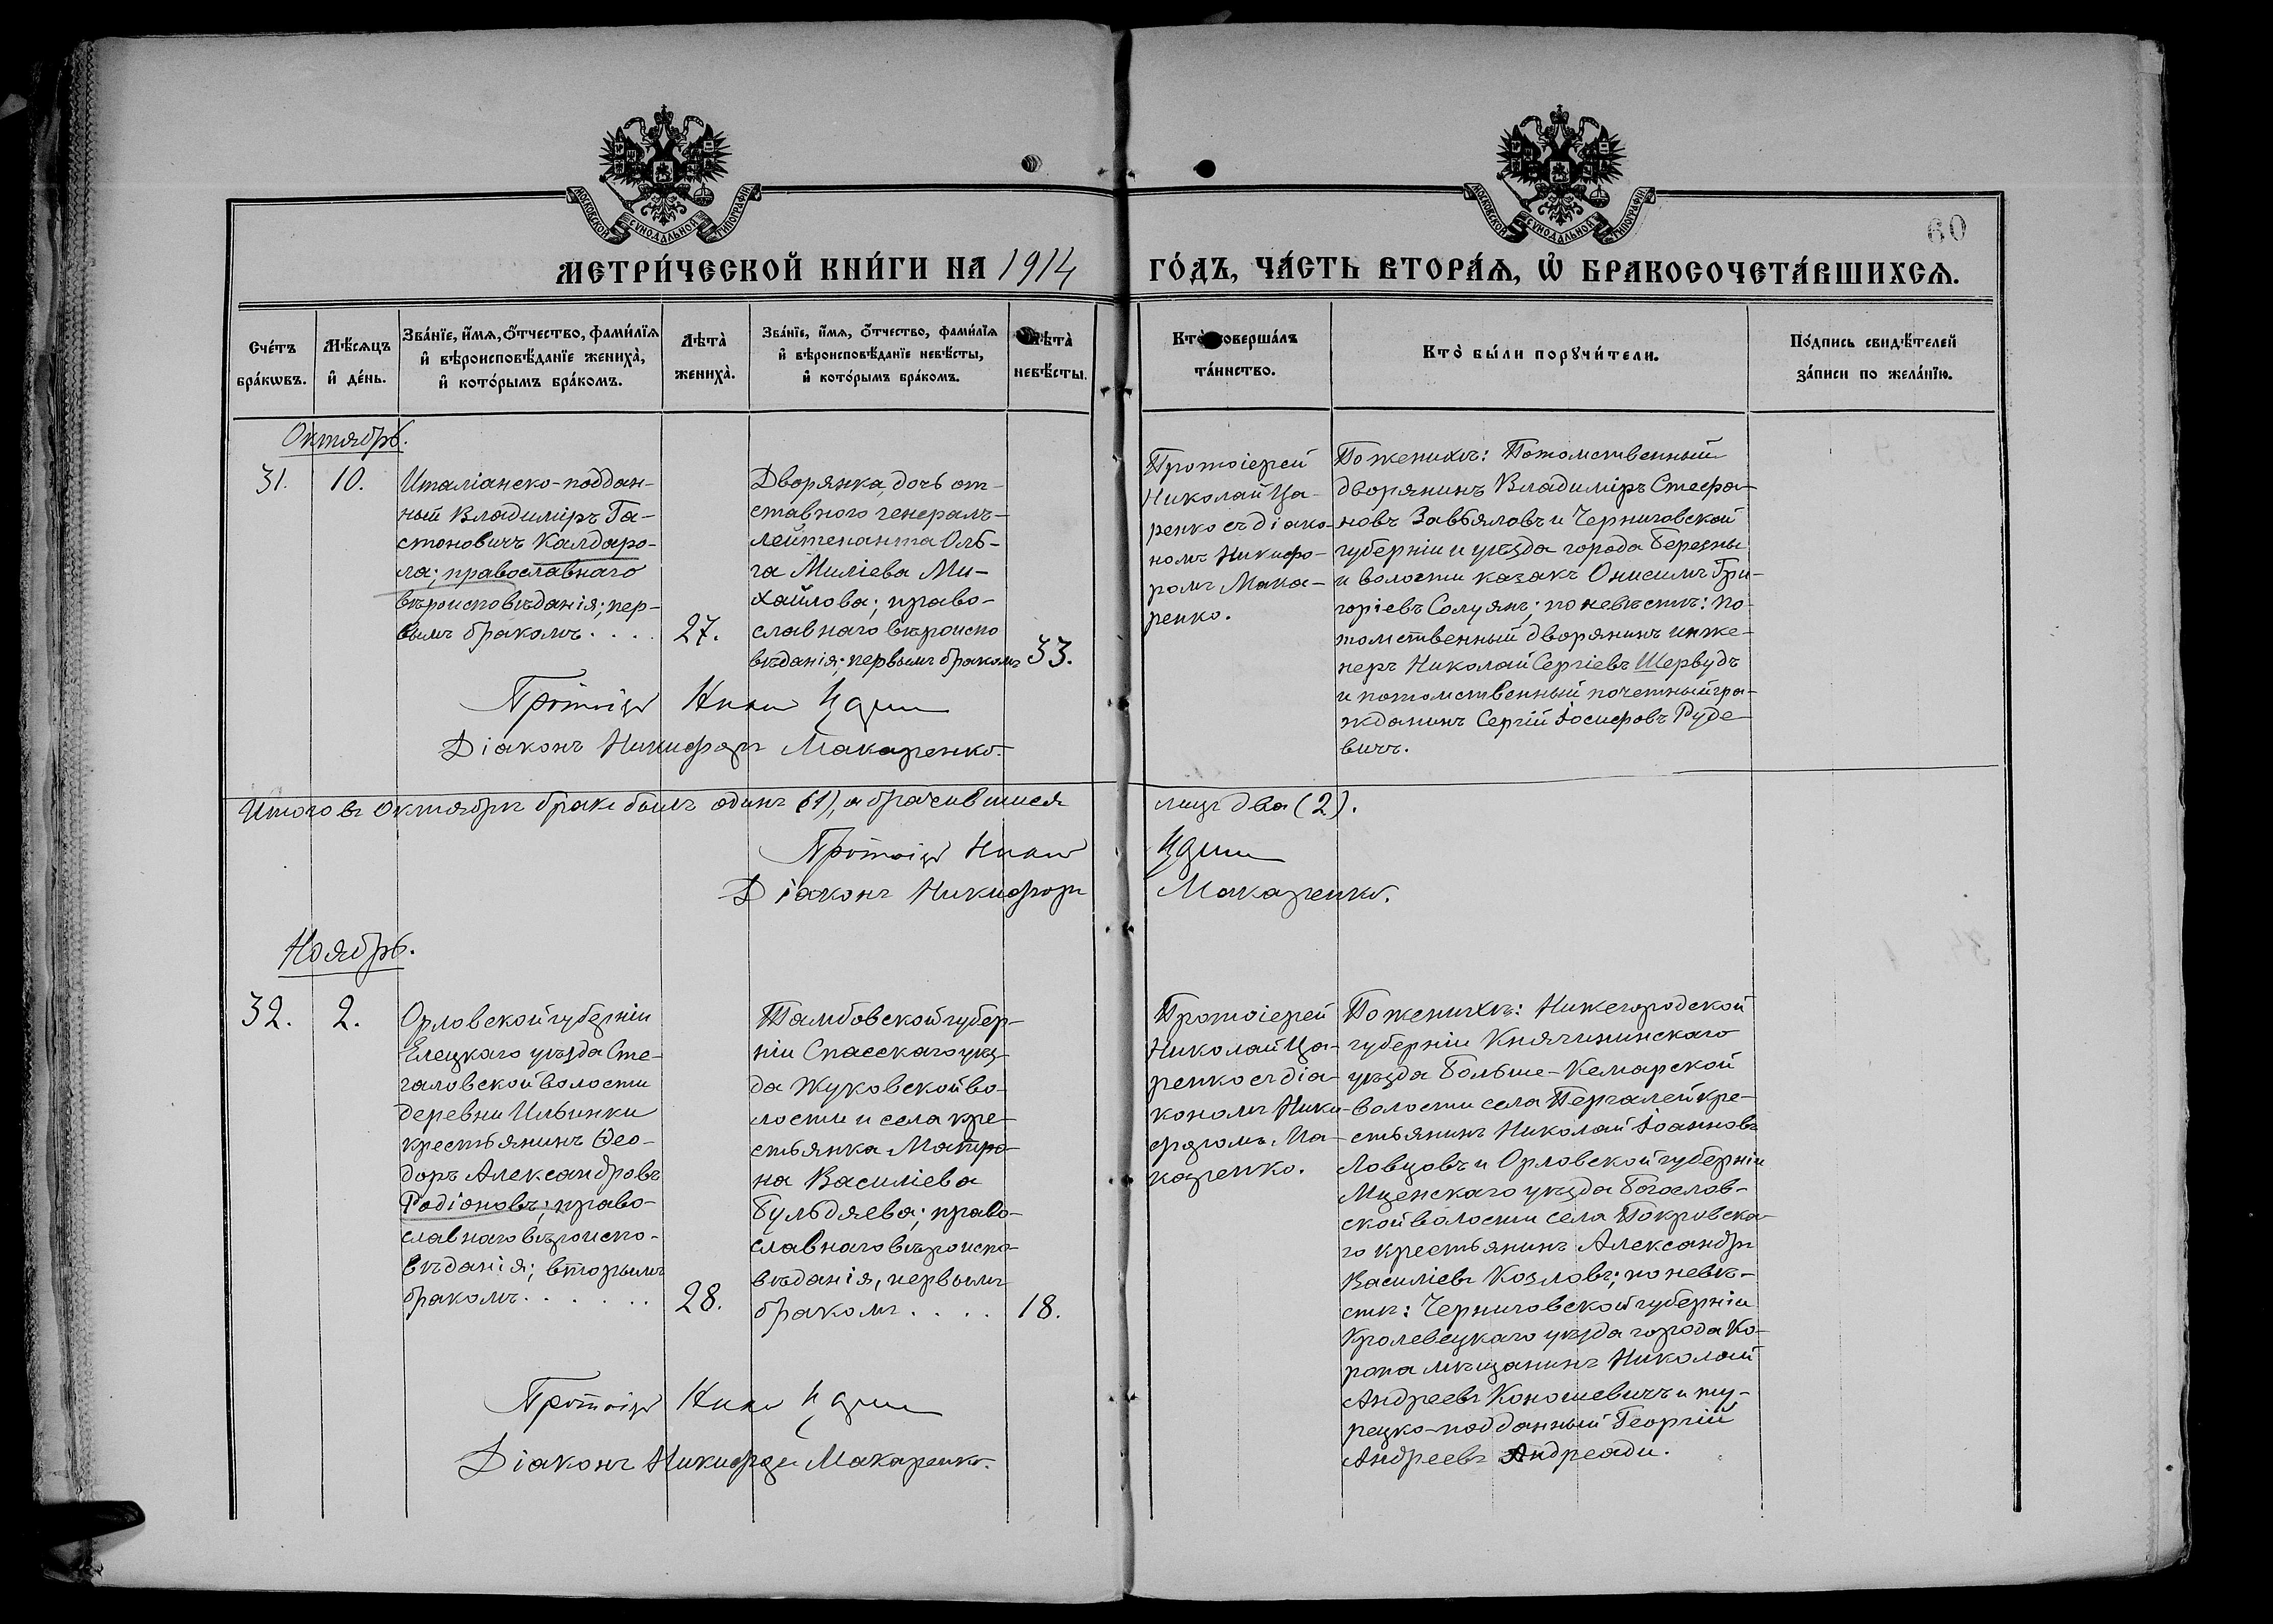 МОСКОВСКОЙ СѴНОДАЛЬНОЙ ТИПОГРАФІИ
МОСКОВСКОЙ СѴНОДАЛЬНОЙ ТИПОГРАФІИ
60
МЕТРИ́ЧЕСКОЙ КНИ́ГИ НА 1914 ГО́ДЪ, ЧА́СТЬ ВТОРА́Ѧ, Ѡ҆ БРАКОСОЧЕТА́ВШИХСѦ.
Сче́тъ
бра́кѡвъ.
Мѣ́сѧцъ
и҆ де́нь.
Зва́нїе, и҆́мѧ, ѻ҆́тчество, фами́лїѧ
и҆ вѣроисповѣ́данїе жениха̀,
и҆ кото́рымъ бра́комъ.
Лѣта̀
жениха̀.
Зва́нїе, и҆́мѧ, ѻ҆́тчество, фами́лїѧ
и҆ вѣроисповѣ́данїе невѣ́сты,
и҆ кото́рымъ бра́комъ.
Лѣта̀
невѣ́сты.
Кто̀ соверша́лъ
та́инство.
Кто̀ бы́ли порꙋчи́тели.
По́дпись свидѣ́телей
за́писи по жела́нїю.
Октябрь.
31.
10.
Италіанско-поддан-
ный Владиміръ Га-
стоновичъ Калдаро-
ла; православнаго
вѣроисповѣданія; пер-
вымъ бракомъ. . . .
27.
Дворянка, дочь от-
ставного генералъ-
лейтенанта Оль-
га Миліева Ми-
хайлова; право-
славнаго вѣроиспо
вѣданія; первымъ бракомъ
33.
Протоіерей
Николай Ца-
ренко съ діако-
номъ Никифо-
ромъ Мака-
ренко.
По женихѣ: Потомственный
дворянинъ Владиміръ Стефа-
новъ Завьяловъ и Черниговской
губерніи и уѣзда города Березны
и волости казакъ Онисимъ Гри-
горіевъ Солуянъ; по невѣстѣ: по-
томственный дворянинъ инже-
неръ Николай Сергіевъ Шервудъ
и потомственный почетный гра-
жданинъ Сергій Іосифовъ Руде-
вичъ.
Діаконъ Никифоръ Макаренко.
Итого въ октябрѣ бракъ былъ одинъ (1), а брачившихся лицъ два (2).
Діаконъ Никифоръ Макаренко.
Ноябрь.
32.
2.
Орловской губерніи
Елецкаго уѣзда Сте-
галовской волости
деревни Ильинки
крестьянинъ Ѳео-
доръ Александровъ
Родіоновъ; право-
славнаго вѣроиспо-
вѣданія; вторымъ
бракомъ. . . . . .
28.
Тамбовской губер-
ніи Спасскаго уѣз-
да Жуковской во-
лости и села кре-
стьянка Матро-
на Василіева
Бульдяева; право-
славнаго вѣроиспо-
вѣданія, первымъ
бракомъ . . . .
18.
Протоіерей
Николай Ца-
ренко съ діа-
кономъ Ники-
форомъ Ма-
каренко.
По женихѣ: Нижегородской
губерніи Княгининскаго
уѣзда Больше-Кемарской
волости села Пергалей кре-
стьянинъ Николай Іоанновъ
Ловцовъ и Орловской губерніи
Мценскаго уѣзда Богослов-
ской волости села Покровска-
го крестьянинъ Александръ
Василіевъ Козловъ; по невѣ-
стѣ: Черниговской губерніи
Кролевецкаго уѣзда города Ко-
ропа мѣщанинъ Николай
Андреевъ Коношевичъ и ту-
рецко-подданный Георгій
Андреевъ Андреади.
Діаконъ Никифоръ Макаренко.